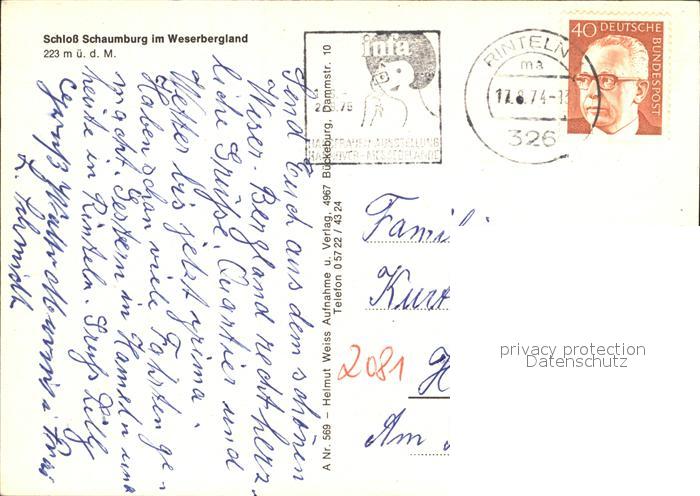 Schloß Schaumburg im Weserbergland
223 m ü. d. M.
infa
HAUSFRAUEN-AUSSTELLUNG
HANNOVER-MESSEGELÄNDE
RINTELN
ma
17.8.74-13
326
40 DEUTSCHE BUNDESPOST
A Nr. 569 – Helmut Weiss Aufnahme u. Verlag, 4967 Bückeburg, Dammstr. 10
Telefon 0 57 22 / 43 24
send Euch aus dem schönen
Weser-Bergland recht herz
liche Grüße. Quartier und
Wetter bis jetzt prima.
Haben schon viele Fahrten ge-
macht. Gestern in Hameln und
heute in Rinteln. Gruß Lilly
Gruß
Schmidt
Fami
Kurt
2081 H
Am
privacy protection
Datenschutz